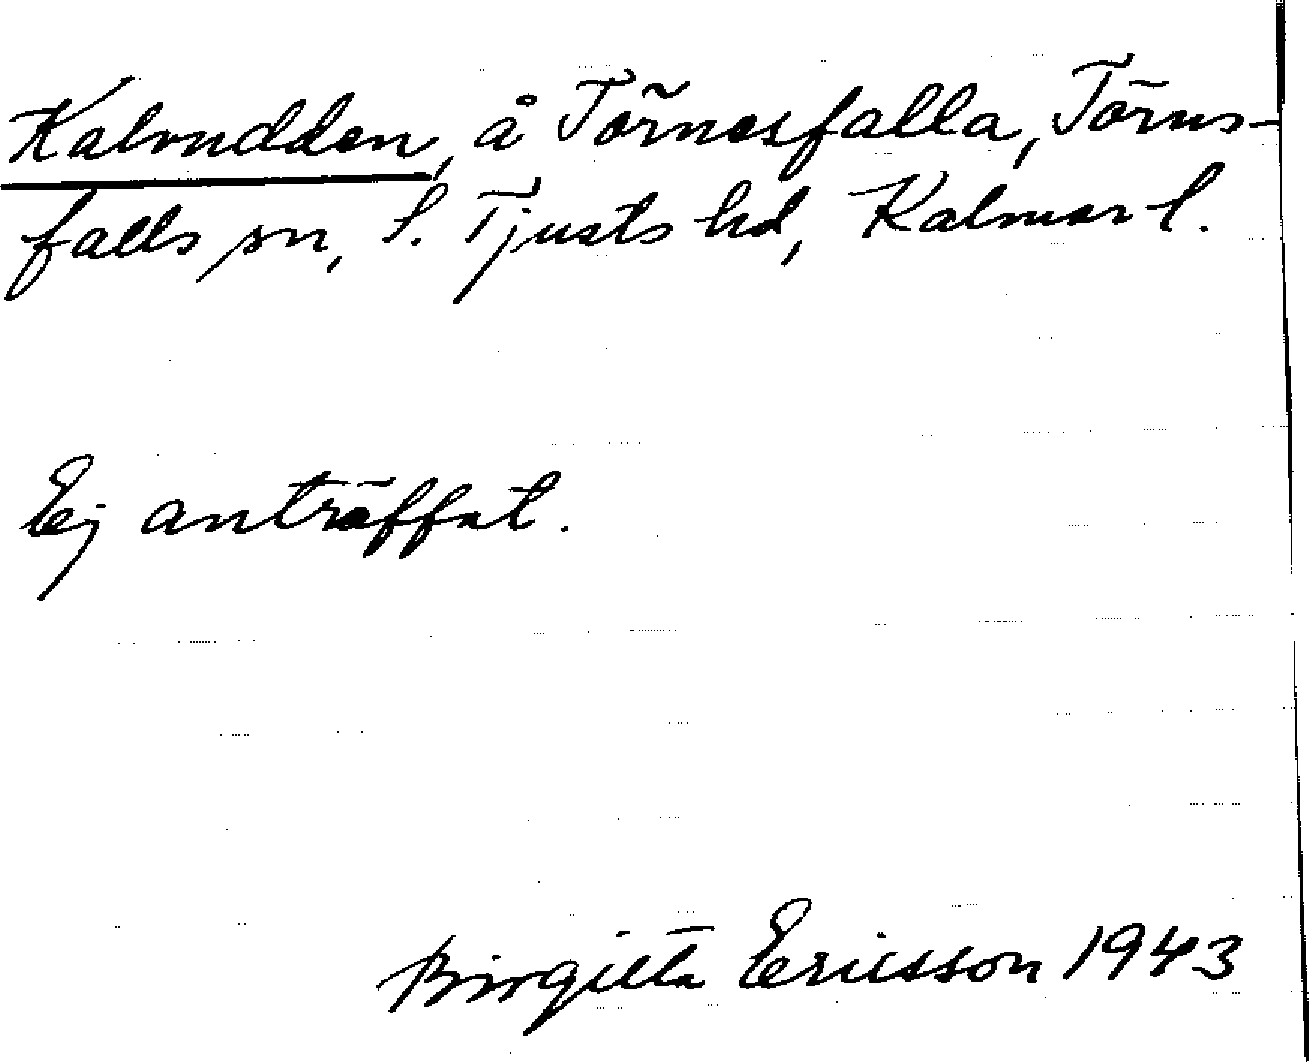 Kalvudden, å Törnesfalla, Törns-
falls sn, S. Tjusts hd, Kalmar l.
Ej anträffat.
Birgitta Ericsson 1943